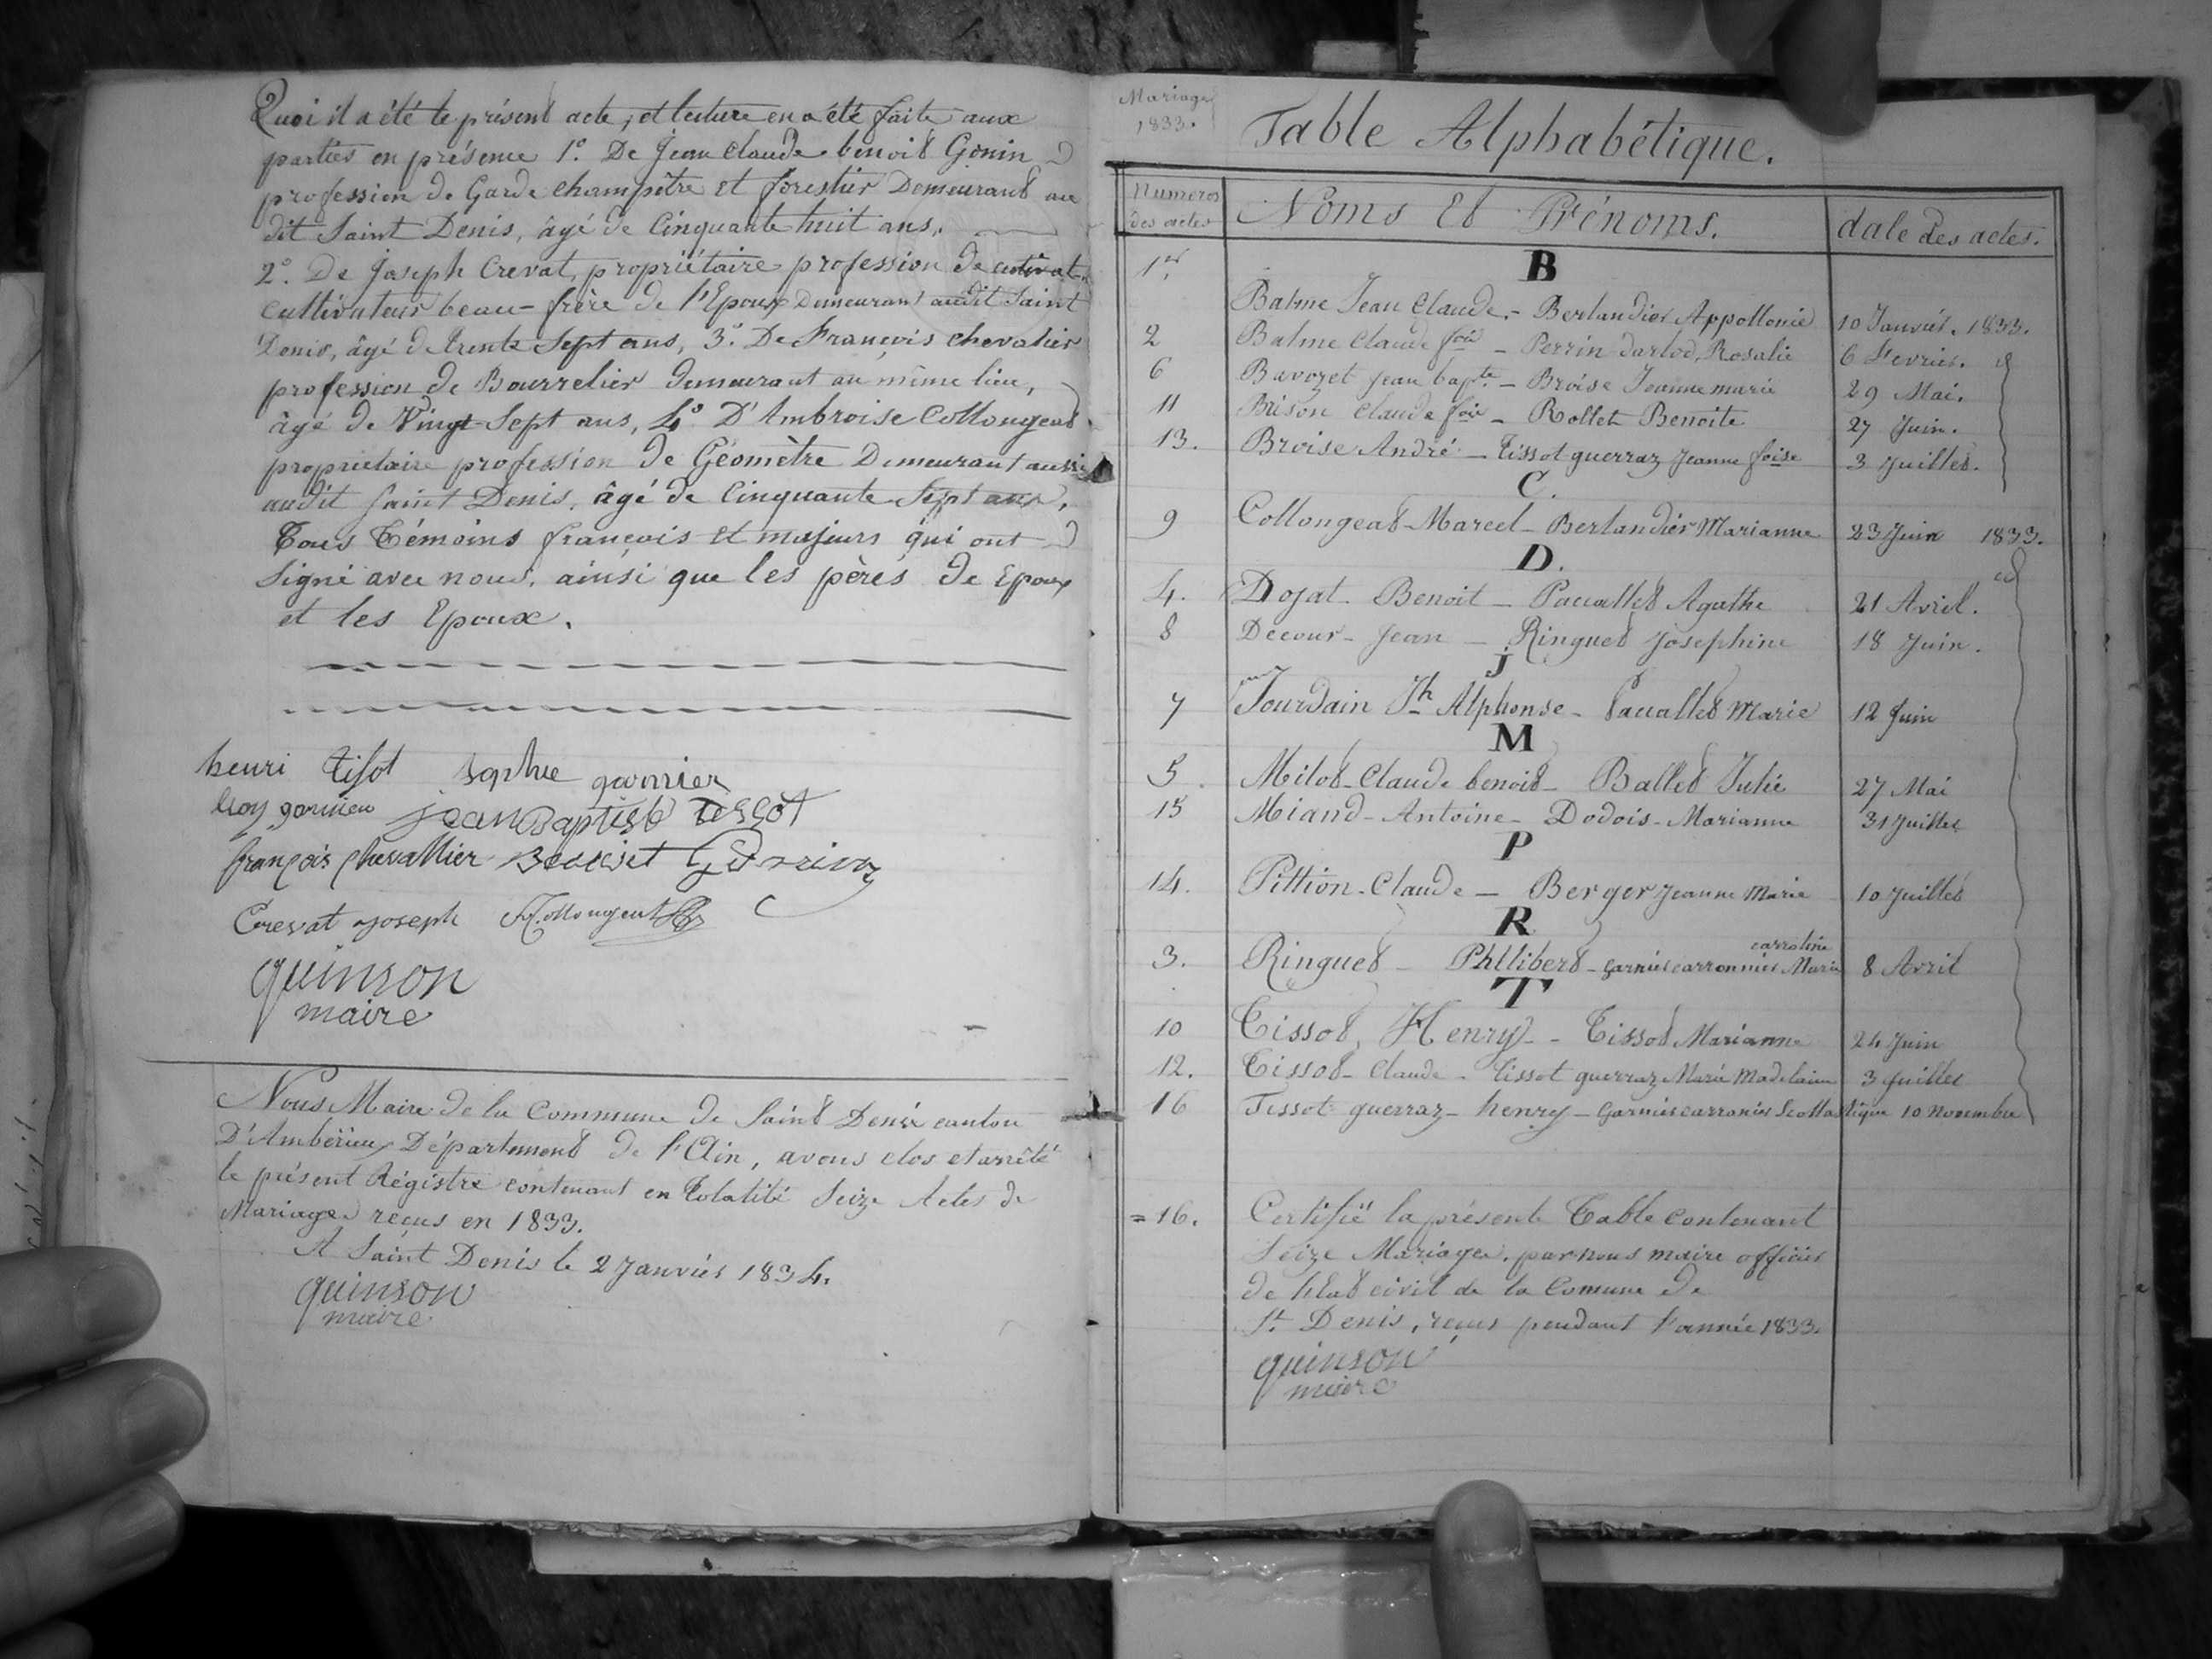 Quoi il a été le présent acte, et lecture en a été faite aux
parties en présence 1.° De Jean Claude benoit Gonin
profession de Garde champêtre et forestier Demeurant au
dit Saint Denis, âgé de Cinquante huit ans,
2.° De Joseph Crevat, propriétaire profession de
cultivateur beau-frère de l'Epoux Demeurant audit Saint
Denis, âgé de trente Sept ans, 3.° De François chevalier
profession de Bourrelier demeurant au même lieu,
âgé de Vingt Sept ans, 4° D'Ambroise Collongeat
propriétaire profession de Géomètre Demeurant aussi
audit Saint Denis, âgé de Cinquante Sept ans,
Tous Témoins françois et majeurs qui ont
Signé avec nous, ainsi que les pères de Epoux
et les Epoux.
henri tisot sophie garnier
garnier jean Baptiste tissot
françois chevallier
Crevat joseph Collongeat
quinson
maire
Nous Maire de la Commune de Saint Denis canton
D'Ambérieu, Département de l'Ain, avons clos et arrêté
le présent Régistre contenant en totalité Seize Actes de
Mariages reçus en 1833.
A Saint Denis le 2 Janvier 1834.
quinson
maire
Mariages
1833.
Table Alphabétique.
Numeros des actes Noms Et Prénoms. date des actes.
B
1er Balme Jean Claude. - Berlandier Appollonie 10 Janvier. 1833.
2 Balme Claude fois - Perrin darlod, Rosalie 6 Fevrier. id
6 Bavozet Jean bapte. - Broise Jeanne marie 29 Mai.
11 Brison Claude fois - Rollet Benoite 27 Juin.
13. Broise André - Tissot guerraz Jeanne foise 3 Juillet.
C.
9 Collongeat Marcel - Berlandier Marianne 23 Juin 1833.
D.
4. Dojat Benoit - Paccallet Agathe 21 Avril. id
8 Decour - Jean - Ringuet Josephine 18 Juin.
J
7 Jourdain Jh Alphonse - Paccallet Marie 12 Juin
M
5 Milot Claude benoit - Ballet Julie 27 Mai
15 Miand - Antoine - Dodois - Marianne 31 Juillet
P
14. Pittion - Claude - Berger Jeanne Marie 10 Juillet
R
carroline
3. Ringuet - Phllibert - Garnier carronnier Marie 8 Avril
T
10 Tissot, Henry - - Tissot Marianne 24 Juin
12. Tissot - Claude - Tissot guerraz Marie Madelaine 3 Juillet
16 Tissot guerraz - henry - Garnier carronier Scollastique 10 Novembre
= 16. Certifié la présente Table contenant
Seize Mariages, par nous maire officier
de l'Etat civil de la Comune de
St. Denis, reçus pendant l'année 1833.
quinson
maire